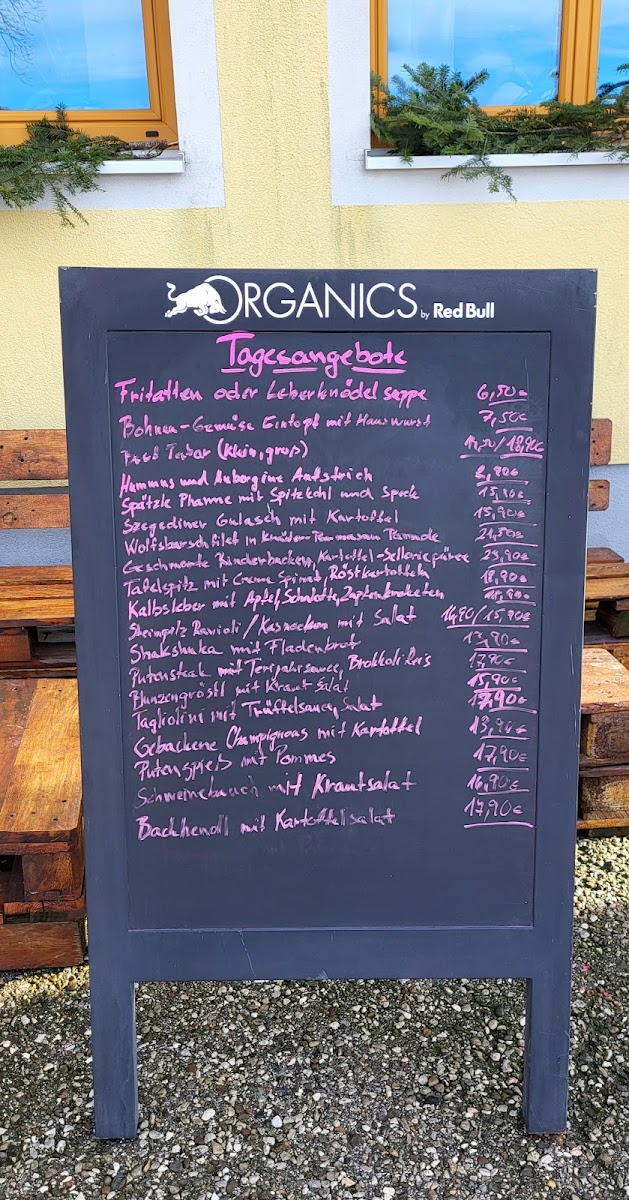 ORGANICS by Red Bull
Tagesangebote
Fritatten oder Leberknödelsuppe 6,50€
Bohnen-Gemüse Eintopf mit Hauswurst 7,50€
Beef Tatar (klein, groß) 14,50/18,90€
Hummus und Aubergine Aufstrich 8,90€
Spätzle Pfanne mit Spitzkohl und Speck 15,90€
Szegediner Gulasch mit Kartoffel 15,90€
Wolfsbarschfilet in Kräuter-Parmesan Panade 21,80€
Geschmorte Rinderbacken, Kartoffel-Selleriepüree 23,90€
Tafelspitz mit Creme Spinat, Röstkartoffeln 18,90€
Kalbsleber mit Apfel, Schalotte, Zapfenkroketten
Steinpilz Ravioli/Kasnocken mit Salat 14,90/15,90€
Shakshuka mit Fladenbrot 13,90€
Putensteak mit Teriyakisauce, Brokkoli Reis 17,90€
Blunzengröstl mit Kraut Salat 15,90€
Tagliolini mit Trüffelsauce, Salat 17,90€
Gebackene Champignons mit Kartoffel 13,90€
Putenspieß mit Pommes 17,90€
Schweinebauch mit Krautsalat 16,90€
Backhendl mit Kartoffelsalat 17,90€